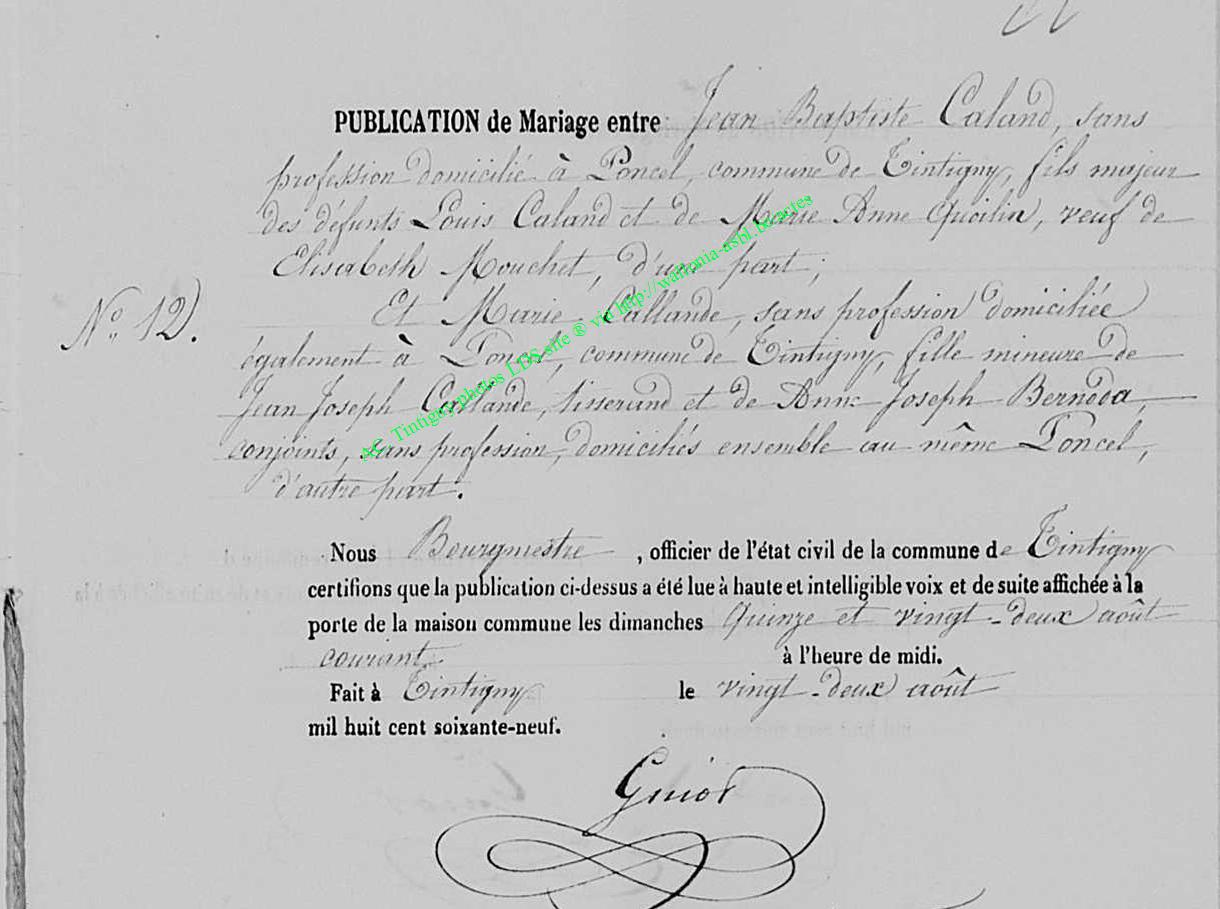 PUBLICATION de Mariage entre Jean Baptiste Caland, sans
profession domicilié à Poncel, commune de Tintigny, fils majeur
des défunts Louis Caland et de Marie Anne Quoilin, veuf de
Elisabeth Mouchet, d'une part;
N° 12.
Et Marie Callande, sans profession domiciliée
également à Poncel, commune de Tintigny, fille mineure de
Jean Joseph Callande, tisserand et de Anne Joseph Berneda,
conjoints, sans profession, domiciliés ensemble au même Poncel,
d'autre part.
Nous Bourgmestre, officier de l'état civil de la commune de Tintigny
certifions que la publication ci-dessus a été lue à haute et intelligible voix et de suite affichée à la
porte de la maison commune les dimanches Quinze et vingt-deux août
courant à l'heure de midi.
Fait à Tintigny le vingt-deux août
mil huit cent soixante-neuf.
AC Tintigny photos LDS site ® via http://wallonia-asbl.be/actes